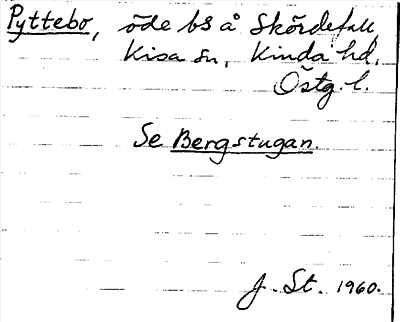 Pyttebo, öde bs å Skördefall,
Kisa sn, Kinda hd,
Östg. l.
Se Bergstugan.
J. St. 1960.